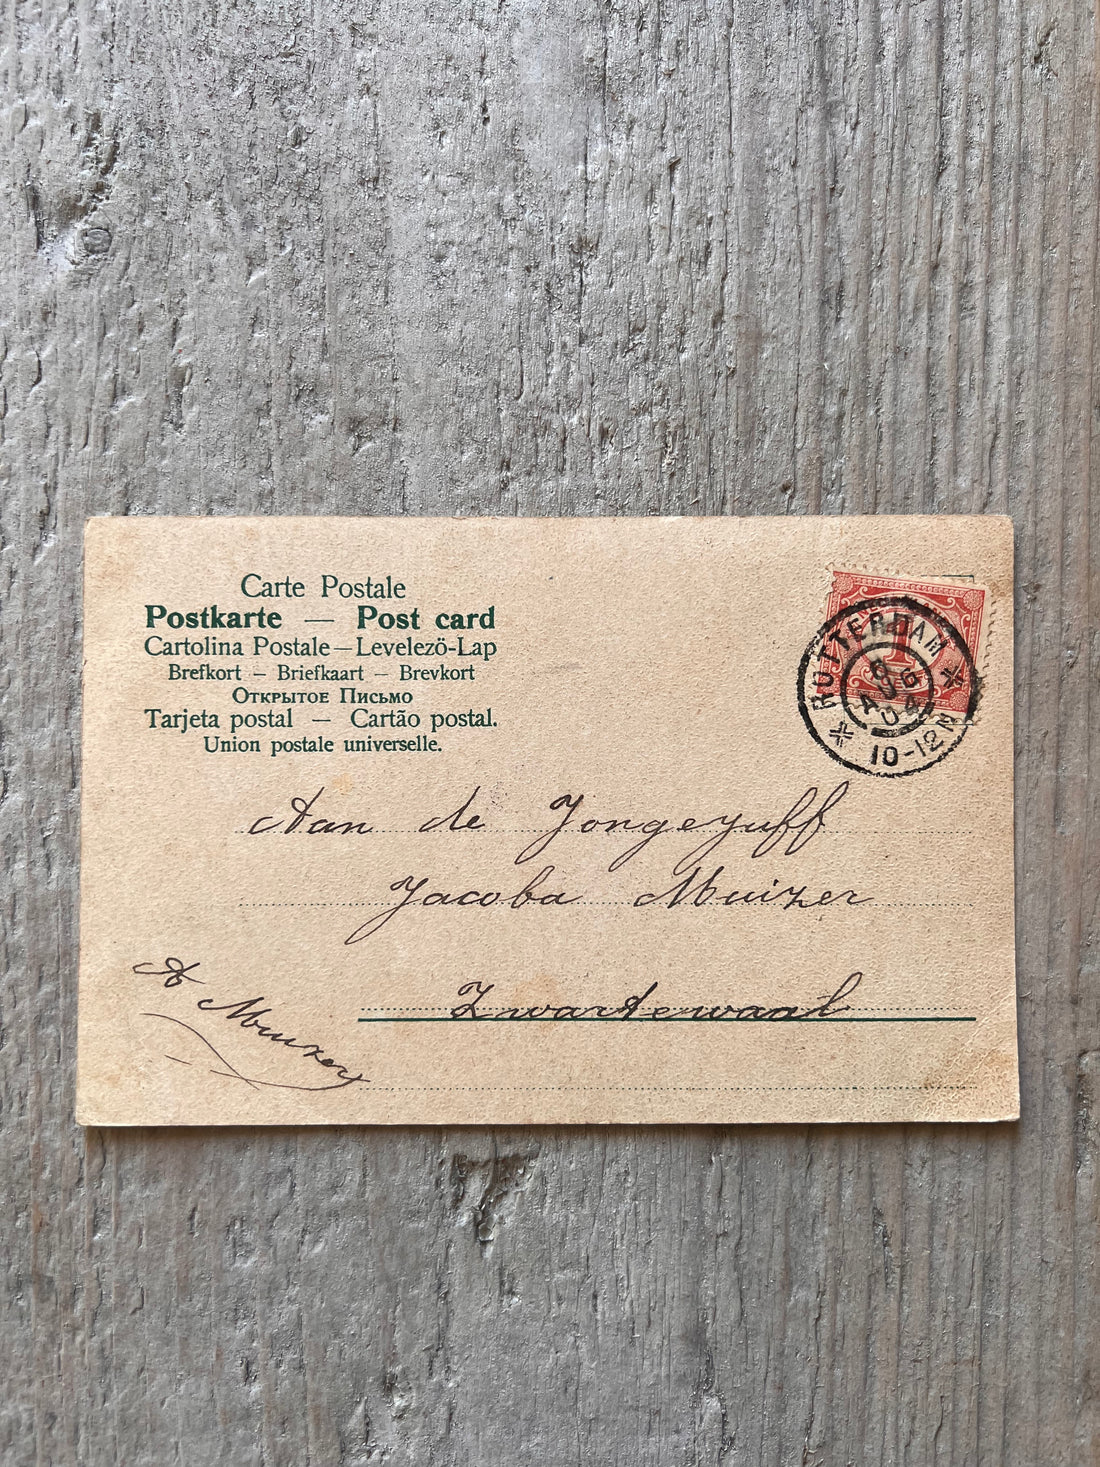 Carte Postale
Postkarte — Post card
Cartolina Postale — Levelezö-Lap
Brefkort – Briefkaart – Brevkort
Открытое Письмо
Tarjeta postal — Cartão postal.
Union postale universelle.
ROTTERDAM
10-12
1
Aan de Jongejuff
Jacoba Muizer
Zwartewaal
A Muizer